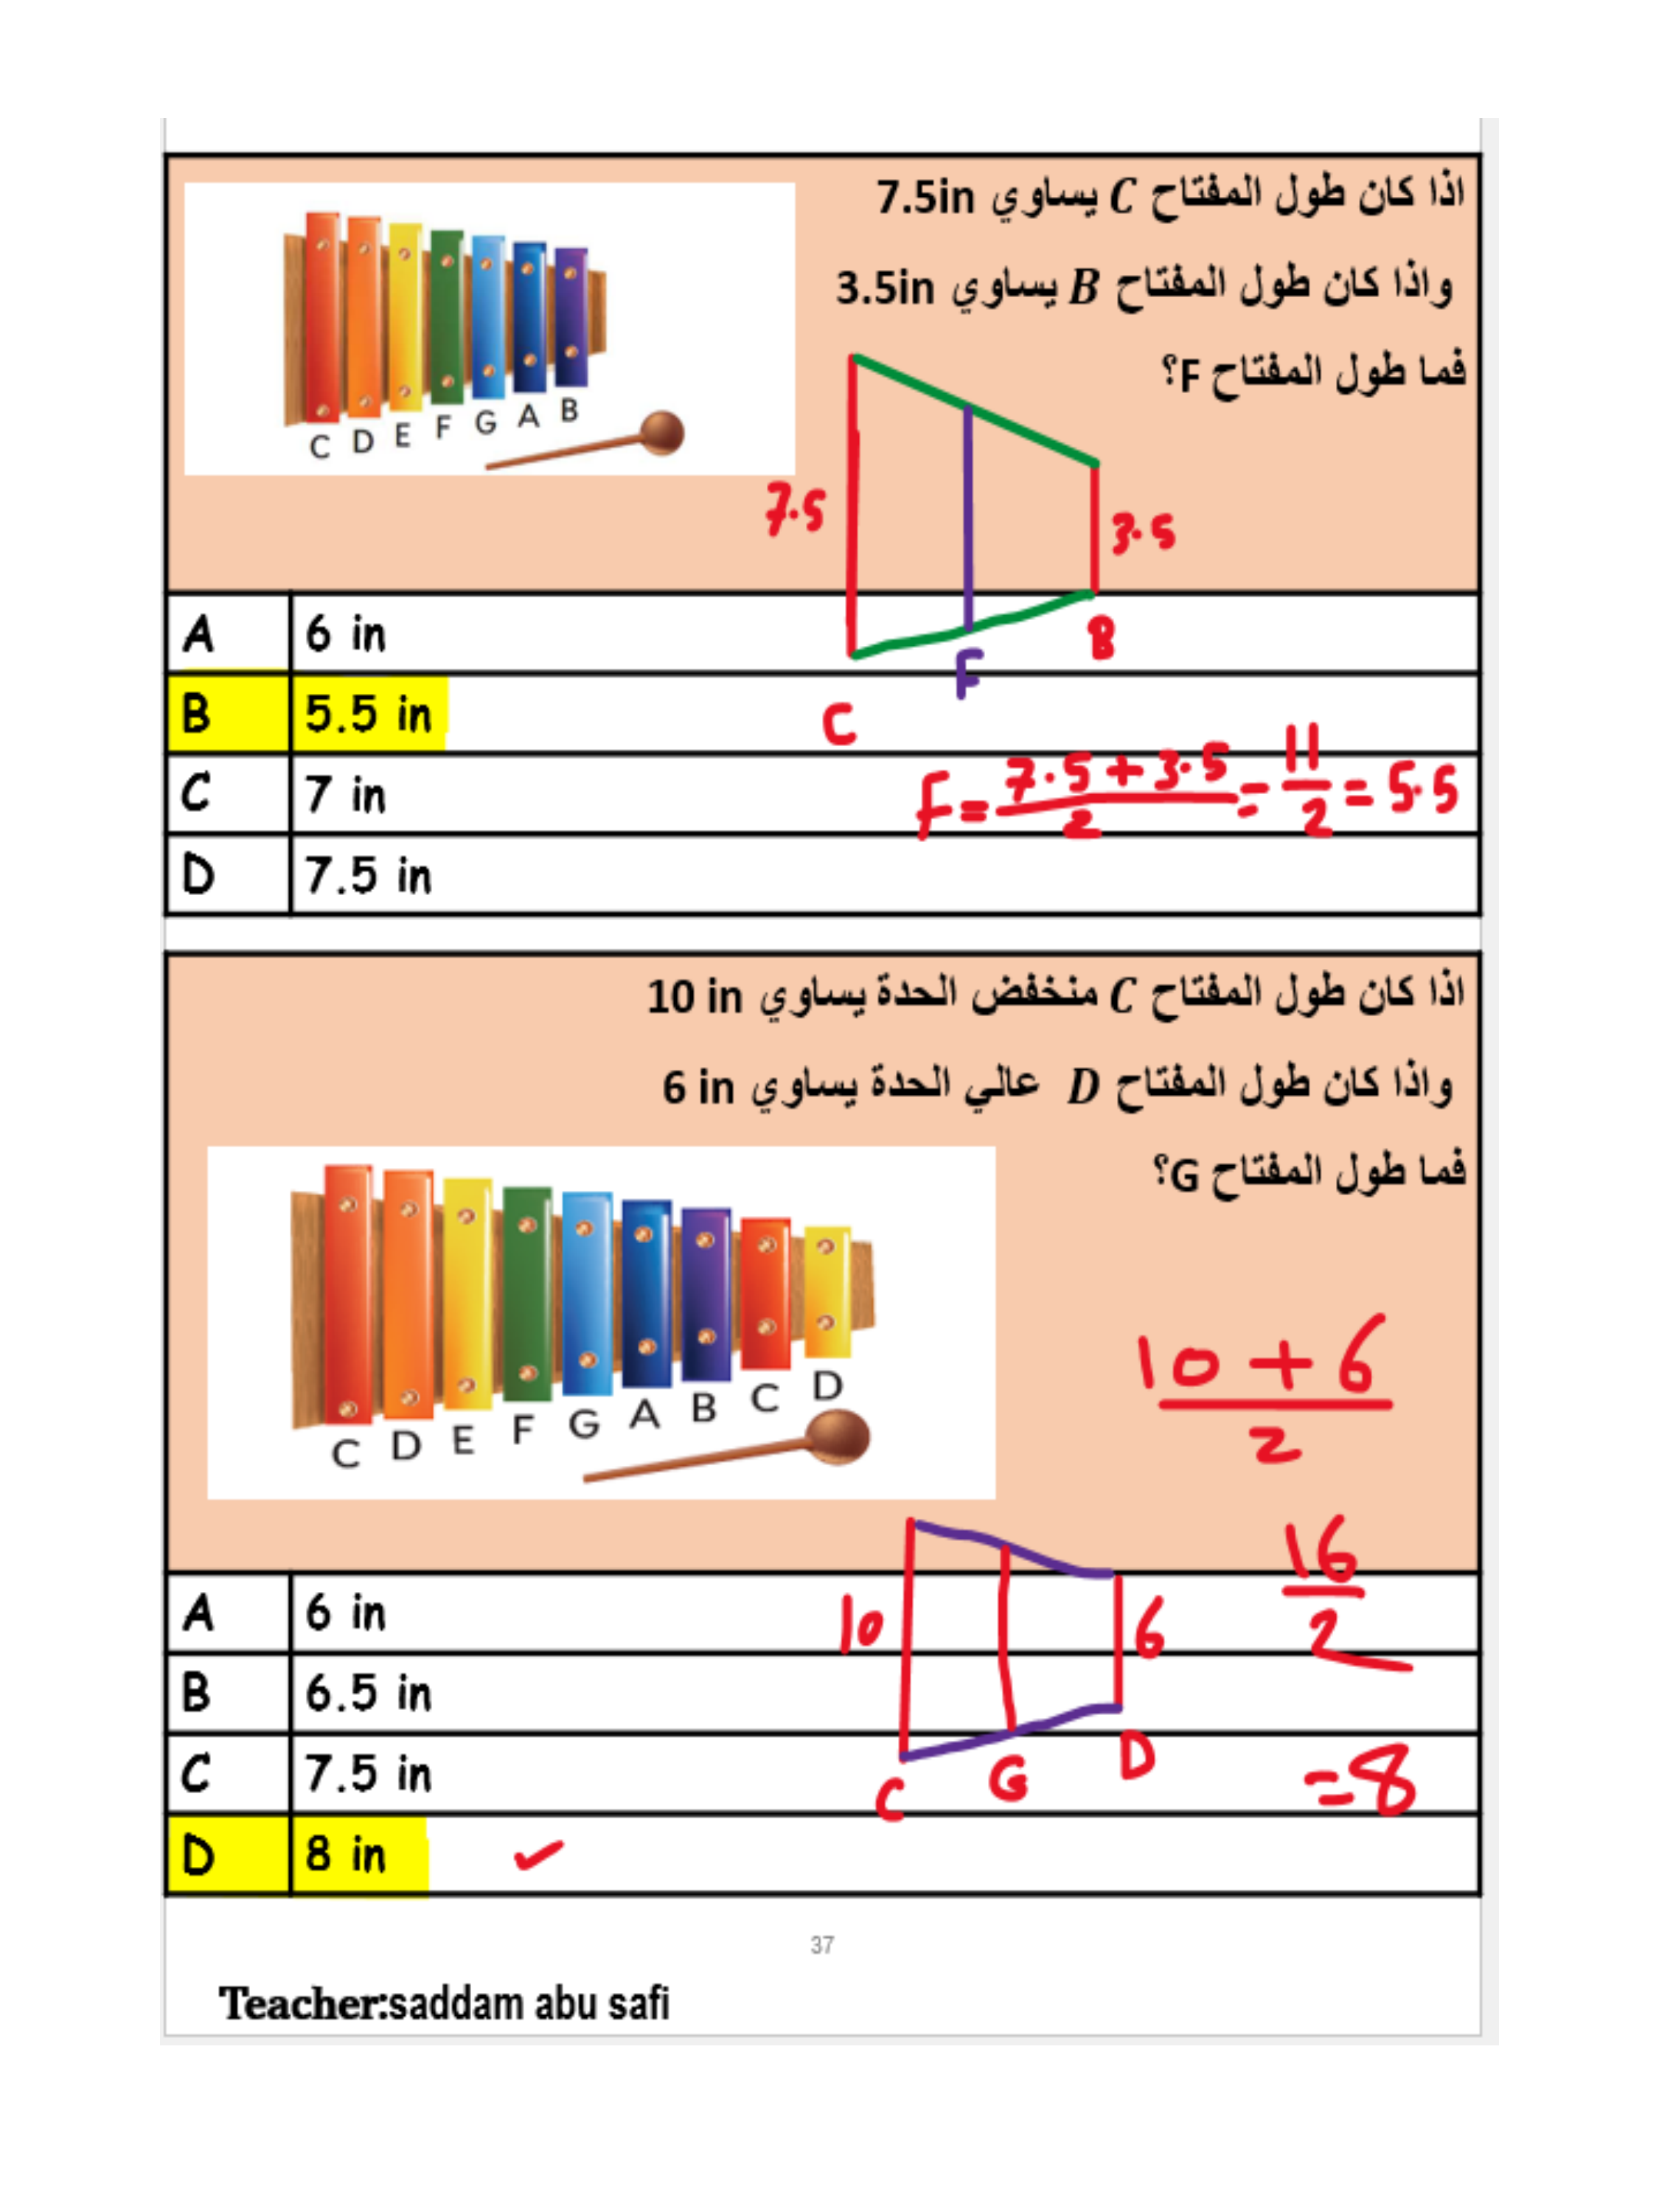 اذا كان طول المفتاح C يساوي 7.5in
واذا كان طول المفتاح B يساوي 3.5in
فما طول المفتاح F؟
C D E F G A B
7.5
3.5
A 6 in
B
B 5.5 in
F
C
C 7 in
F = 7.5 + 3.5 / 2 = 11 / 2 = 5.5
D 7.5 in
اذا كان طول المفتاح C منخفض الحدة يساوي 10 in
واذا كان طول المفتاح D عالي الحدة يساوي 6 in
فما طول المفتاح G؟
C D E F G A B C D
10 + 6
2
16
2
A 6 in
10
6
B 6.5 in
C 7.5 in
C G D
= 8
D 8 in
37
Teacher:saddam abu safi